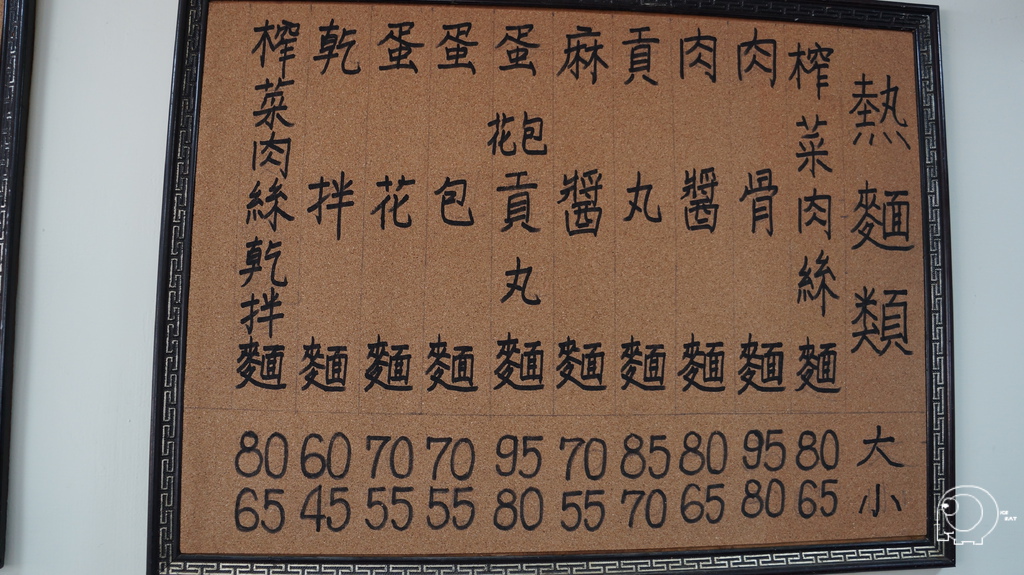 熱麵類 大 小
榨菜肉絲麵 80 65
肉骨麵 95 80
肉醬麵 80 65
貢丸麵 85 70
麻醬麵 70 55
蛋花包貢丸麵 95 80
蛋包麵 70 55
蛋花麵 70 55
乾拌麵 60 45
榨菜肉絲乾拌麵 80 65